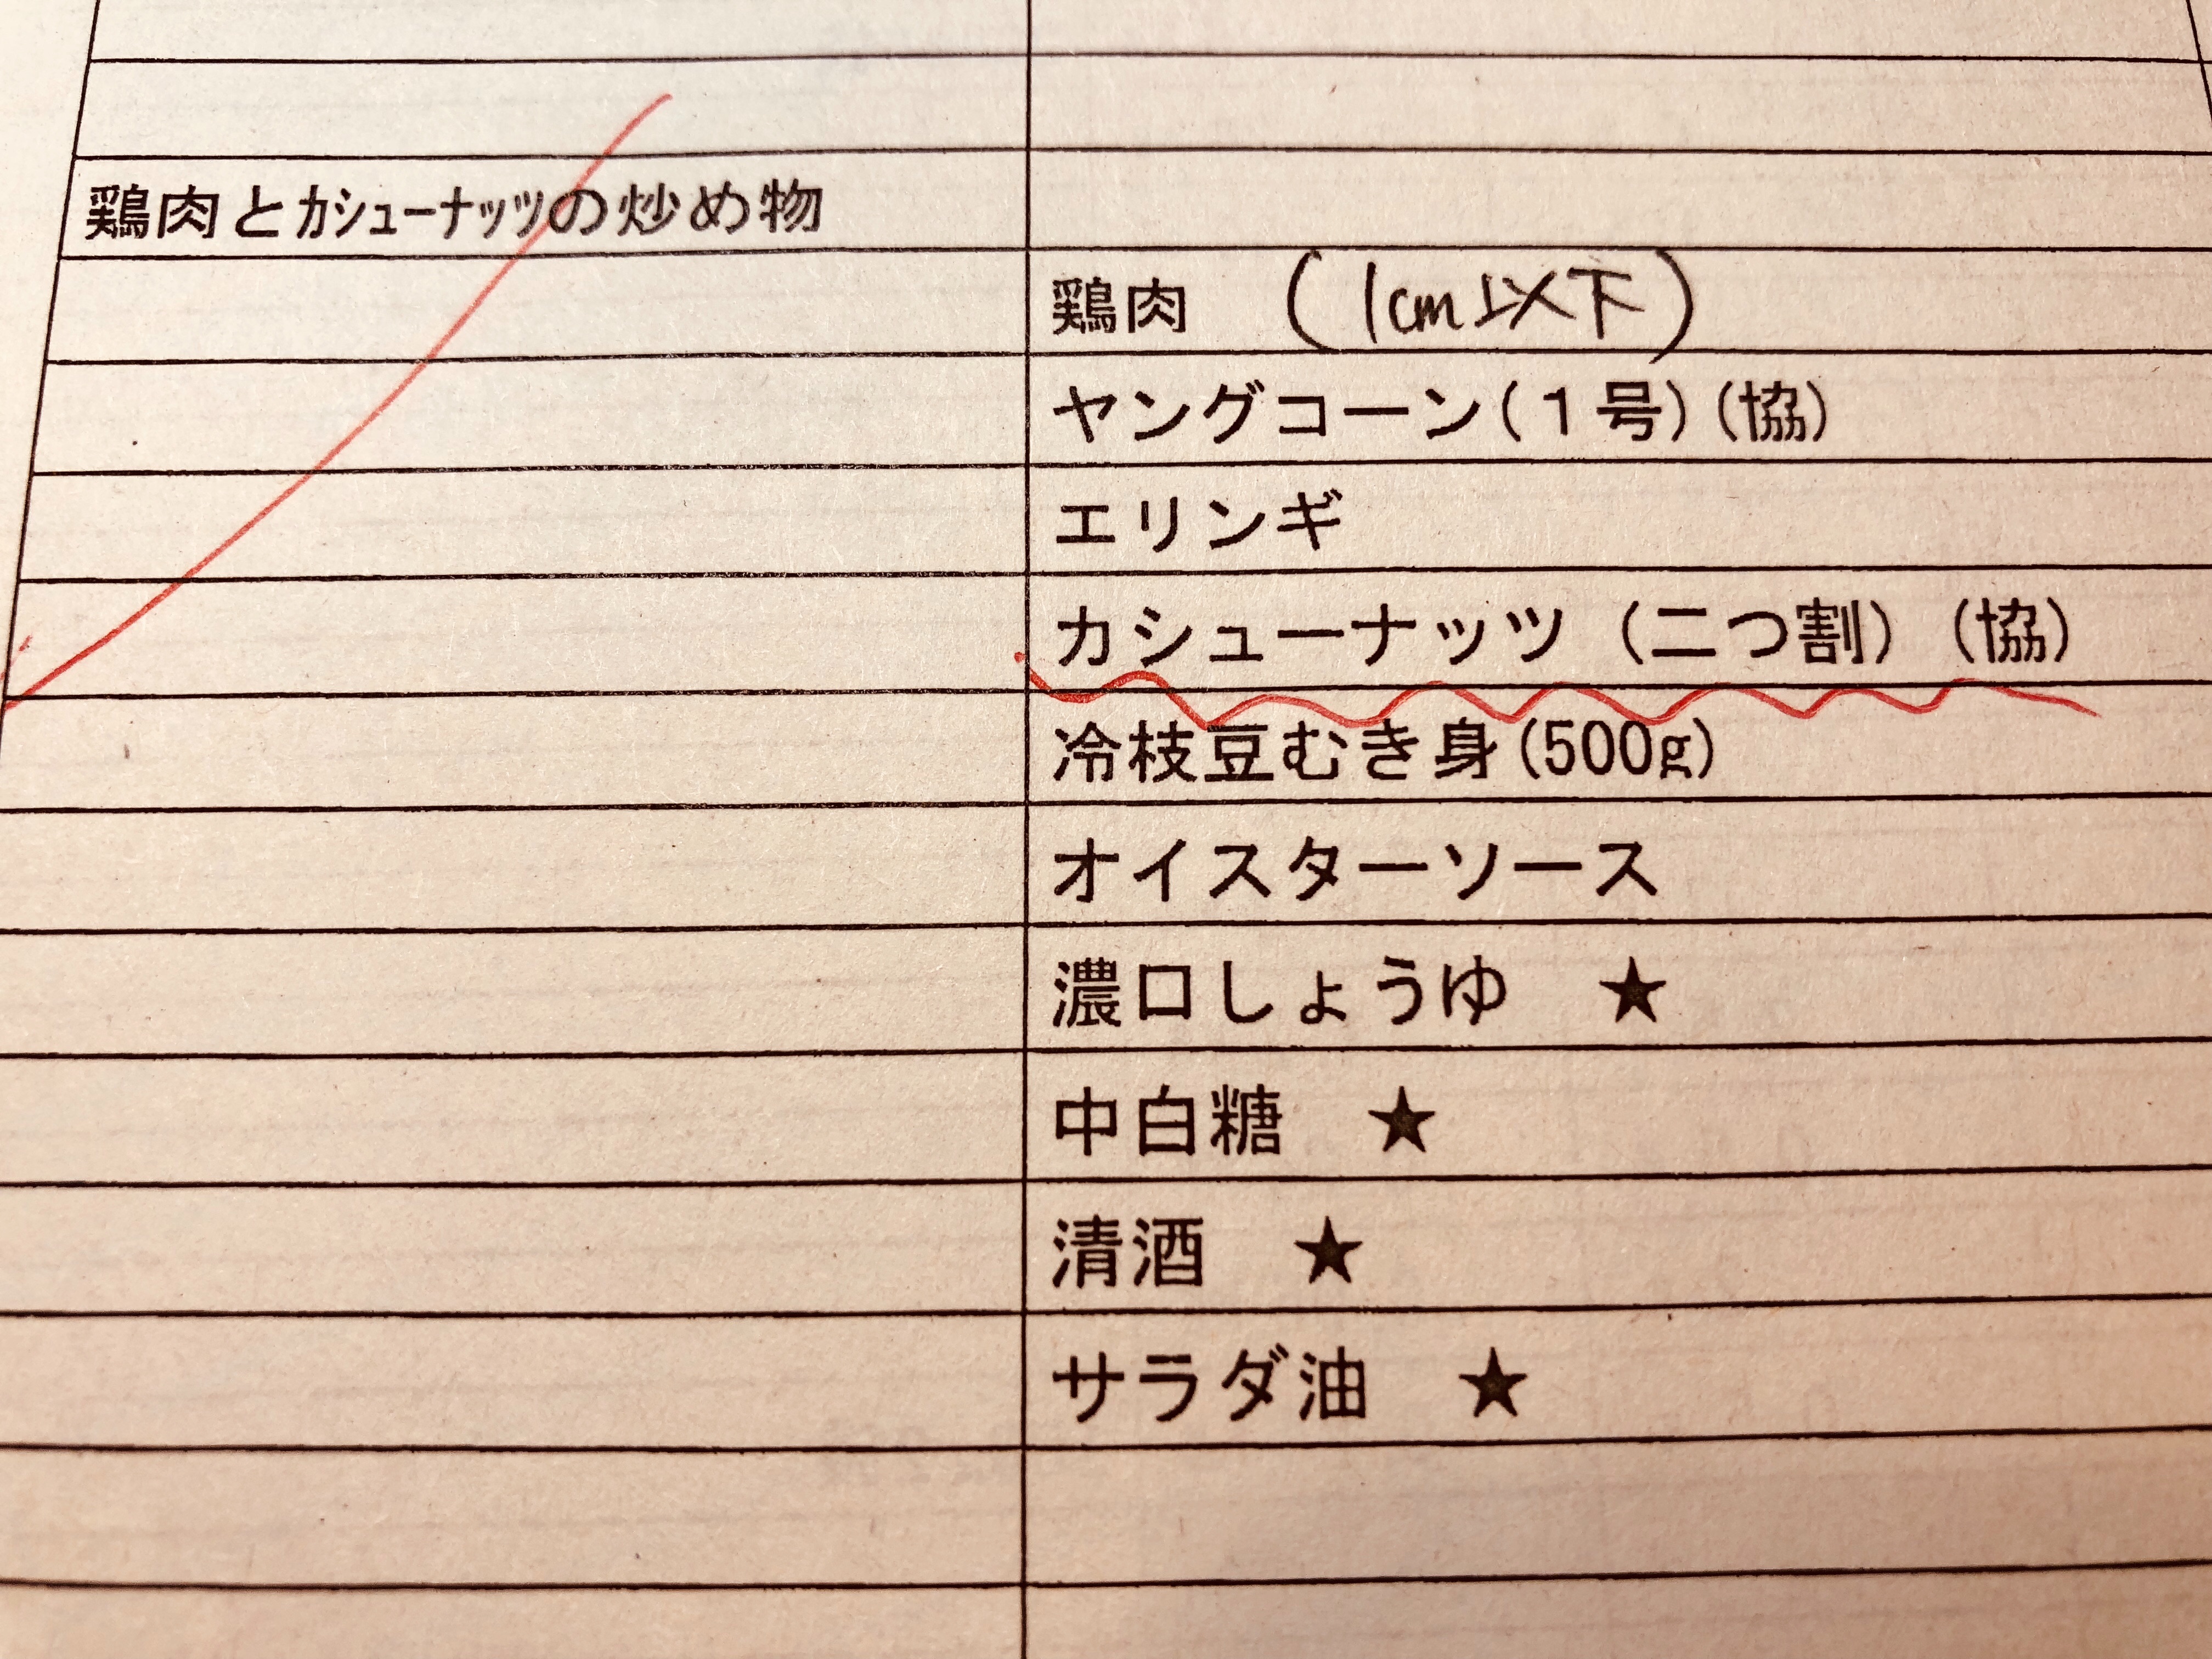 鶏肉とｶｼｭｰﾅｯﾂの炒め物
鶏肉 (1cm以下)
ヤングコーン(１号)(協)
エリンギ
カシューナッツ（二つ割）（協）
冷枝豆むき身(500g)
オイスターソース
濃口しょうゆ　★
中白糖　★
清酒　★
サラダ油　★